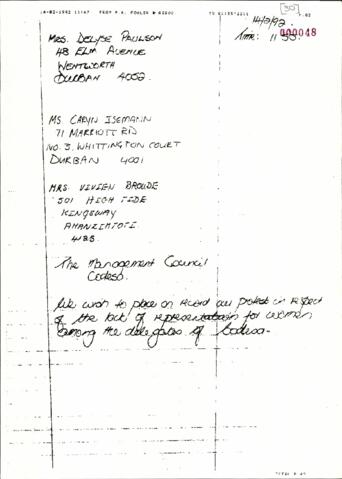 FROM P.A. FOWLER
14/2/92
000048
MRS. DELYSE PAULSON
48 ELM AVENUE
WENTWORTH
DURBAN 4052.
MS. CARYN ISEMANN
71 MARRIOTT RD
NO. 3. WHITTINGTON COURT
DURBAN 4001
MRS. VIVIEN BROUDE
501 HIGH TIDE
KINGSWAY
AMANZIMTOTI
4125
The Management Council
Codesa.
We wish to place on record our protest in respect
of the lack of representation for women
among the delegates of Codesa.